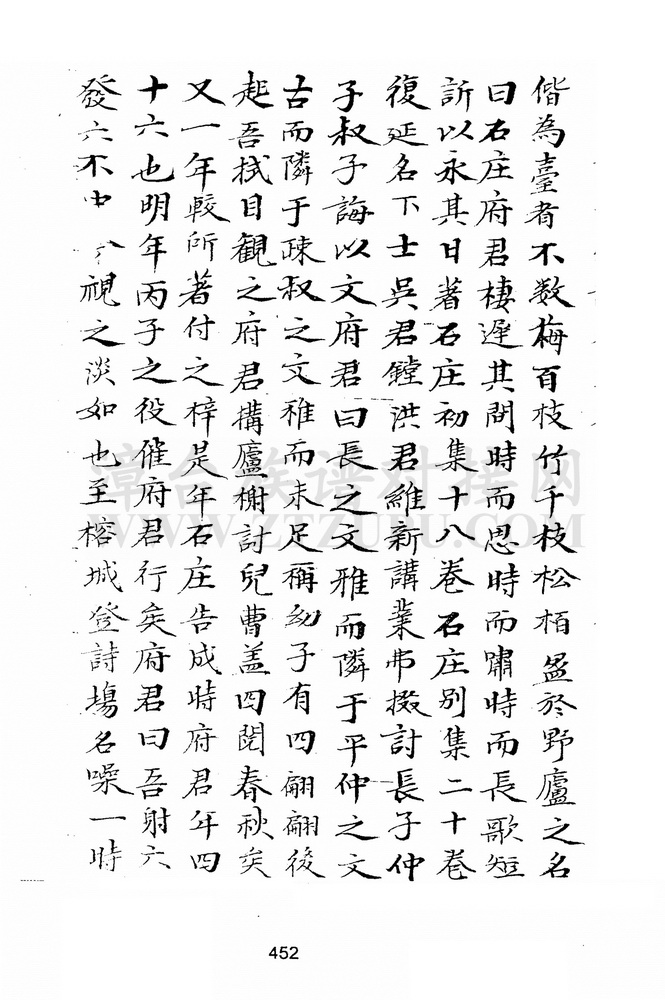 偕為臺者不数梅百枝竹千枝松栢盈於野廬之名
曰石庄府君棲遲其間時而思時而嘯時而長歌短
訴以永其日著石庄初集十八巻石庄別集二十巻
復延名下士吳君鏜洪君維新講業弗掇討長子仲
子叔子誨以文府君曰長之文雅而隣于平仲之文
古而隣于疎叔之文稚而未足稱幼子有四翩翩後
起吾拭目観之府君搆廬榭討兒曹盖四閲春秋矣
又一年較所著付之梓是年石庄告成時府君年四
十六也明年丙子之役催府君行矣府君曰吾射六
發六不中 視之淡如也至榕城登詩塲名噪一時
漳台族谱对接网
WWW.ZTZUPU.COM
452